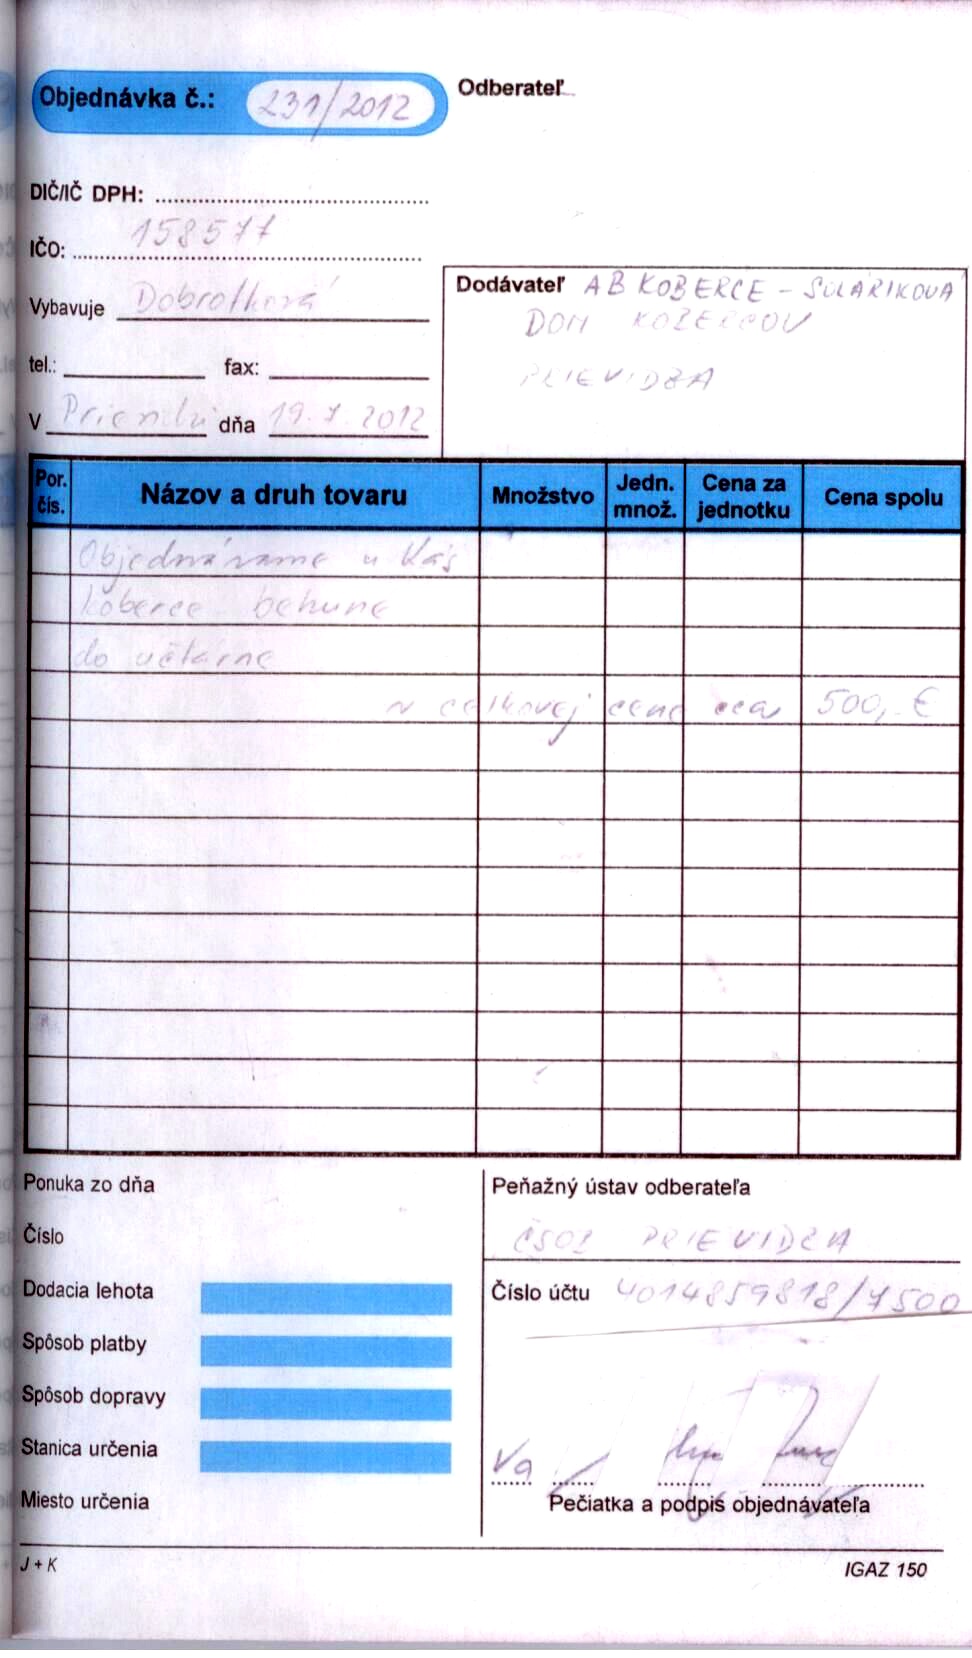 Objednávka č.: 231/2012
Odberateľ
DIČ/IČ DPH:
IČO: 158577
Vybavuje Dobrotková
tel.: fax:
V Prievidzi dňa 19.7.2012
Dodávateľ AB KOBERCE - SOLÁRIKOVA
DOM KOBERCOV
PRIEVIDZA
Por. čís. Názov a druh tovaru Množstvo Jedn. množ. Cena za jednotku Cena spolu
Objednávame u Vás
koberce - behúne
do učtárne
v celkovej cene cca 500,-€
Ponuka zo dňa
Číslo
Dodacia lehota
Spôsob platby
Spôsob dopravy
Stanica určenia
Miesto určenia
Peňažný ústav odberateľa
ČSOB PRIEVIDZA
Číslo účtu 4014859818/7500
Pečiatka a podpis objednávateľa
J + K
IGAZ 150